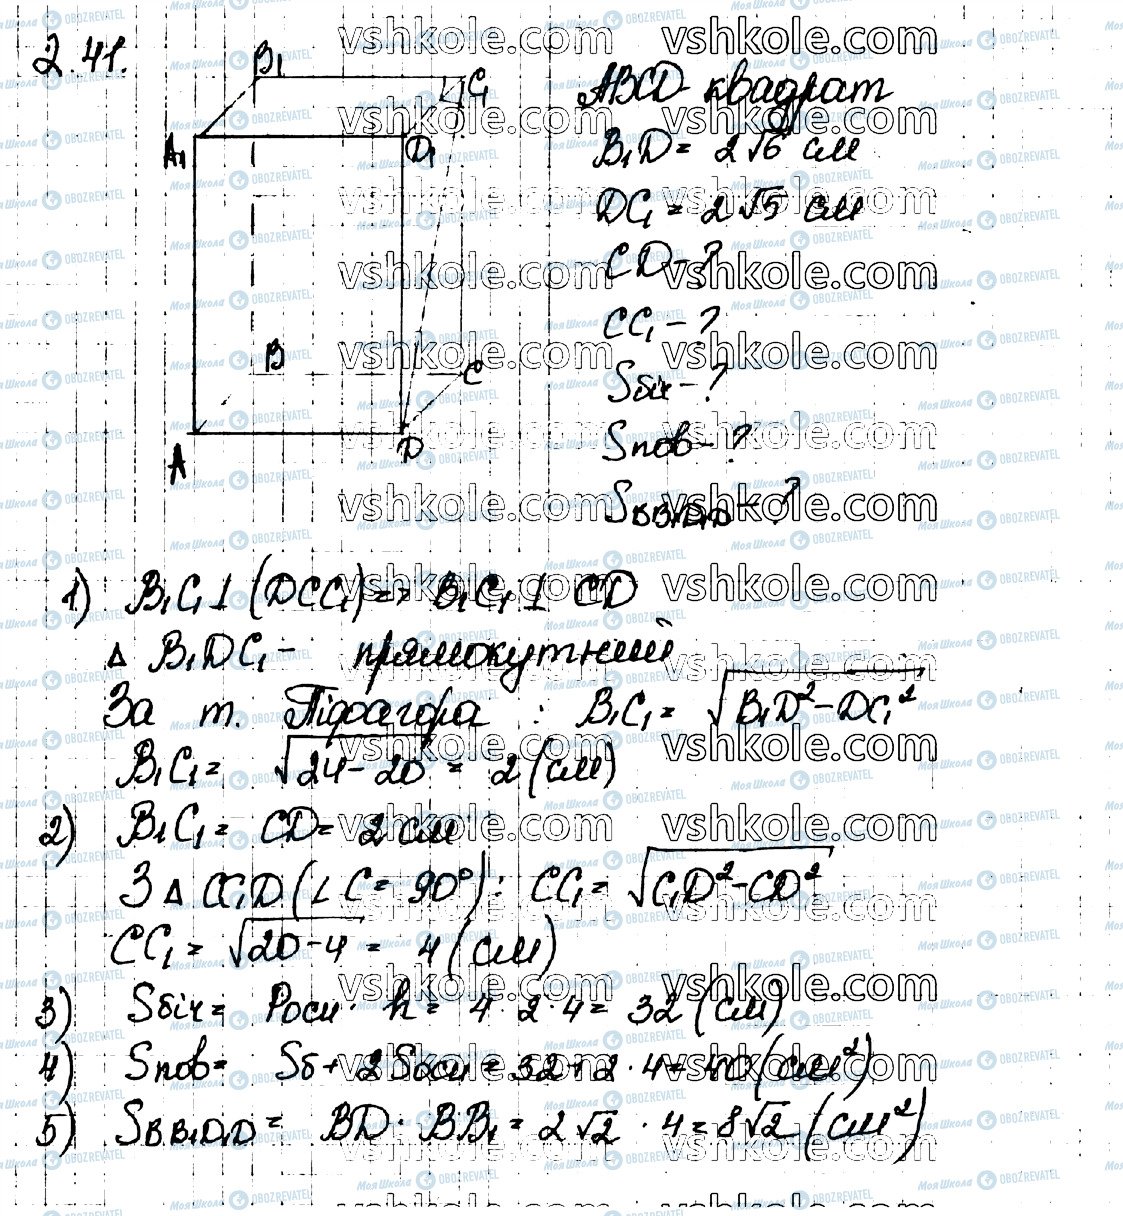 2.41.
B₁ C₁
A₁ D₁
B C
A D
ABCD квадрат
B₁D = 2√6 см
DC₁ = 2√5 см
CD - ?
CC₁ - ?
Sбіч - ?
Sпов - ?
S_BB₁D₁D - ?
1) B₁C₁ ⊥ (DCC₁) => B₁C₁ ⊥ CD
Δ B₁DC₁ - прямокутний
За т. Піфагора : B₁C₁ = √(B₁D² - DC₁²)
B₁C₁ = √(24 - 20) = 2 (см)
2) B₁C₁ = CD = 2 см
З Δ CC₁D (∠C = 90°): CC₁ = √(C₁D² - CD²)
CC₁ = √(20 - 4) = 4 (см)
3) Sбіч = Pосн · h = 4 · 2 · 4 = 32 (см)
4) Sпов = Sб + 2Sосн = 32 + 2 · 4 = 40 (см²)
5) S_BB₁D₁D = BD · BB₁ = 2√2 · 4 = 8√2 (см²)
vshkole.com
Моя Школа OBOZREVATEL